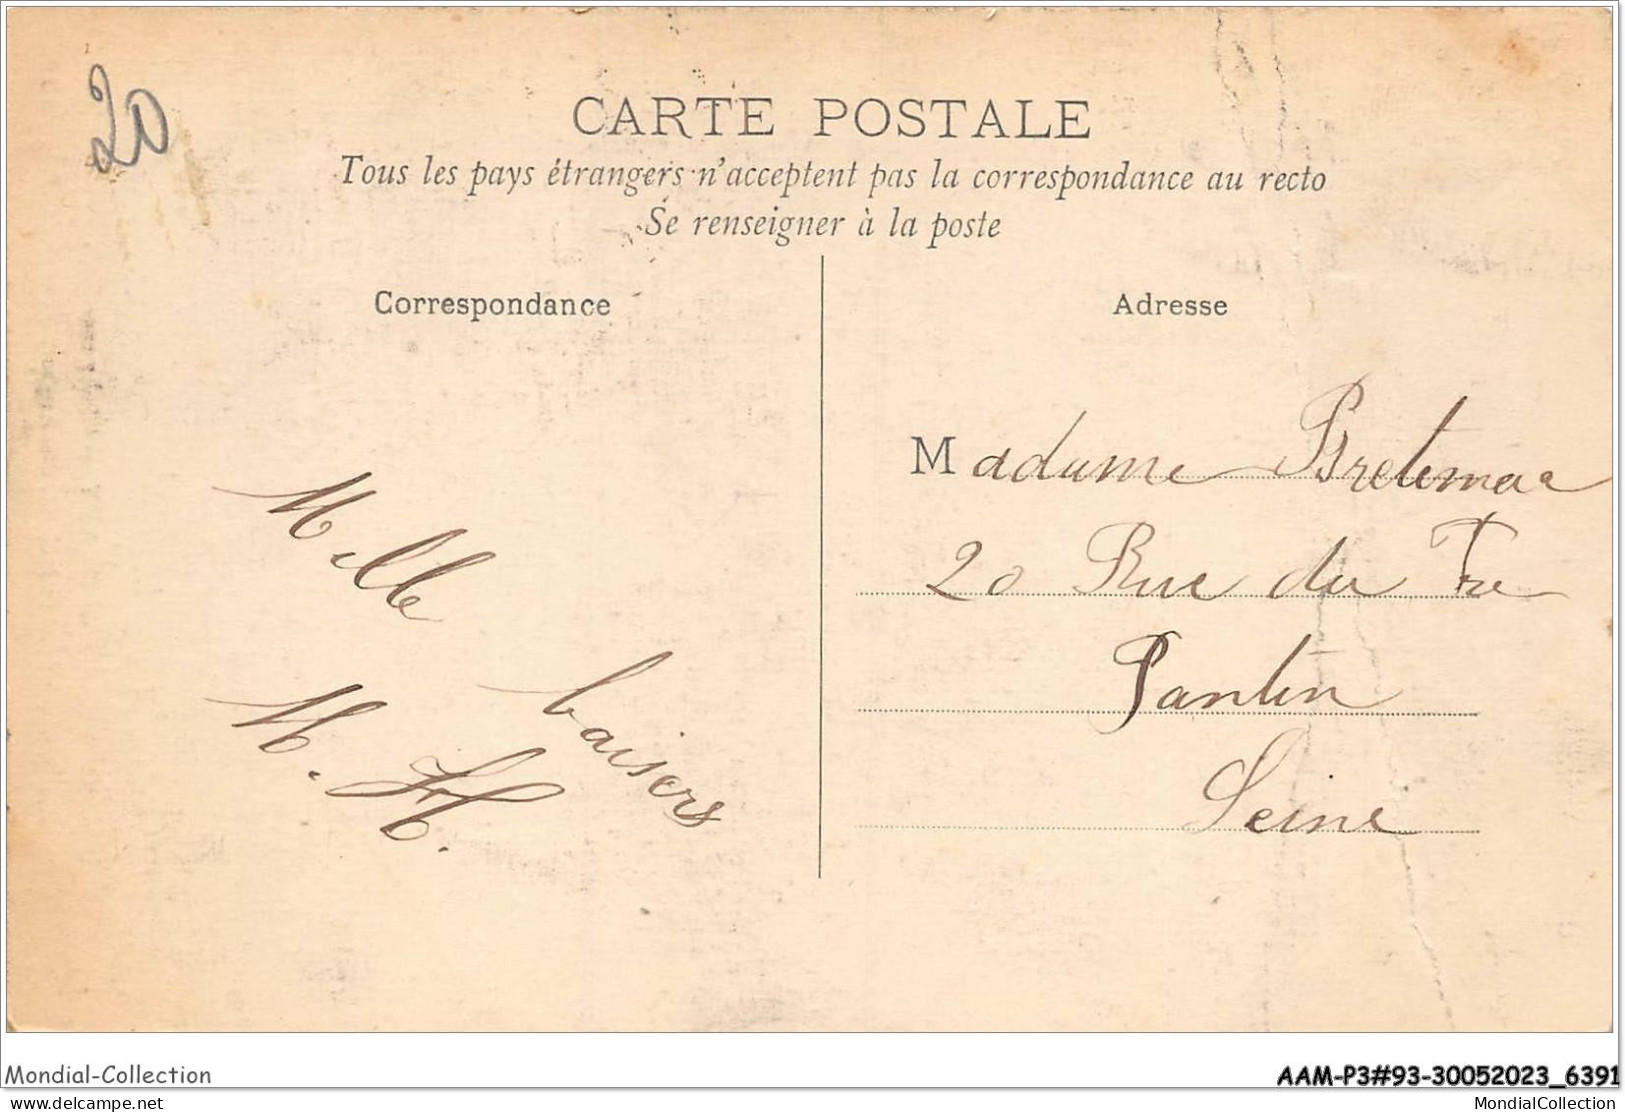 20
CARTE POSTALE
Tous les pays étrangers n'acceptent pas la correspondance au recto
Se renseigner à la poste
Correspondance
Mille
baisers
M. H.
Adresse
Madame
20 Rue du Pré
Pantin
Seine
Mondial-Collection
AAM-P3#93-30052023_6391
delcampe.net
MondialCollection